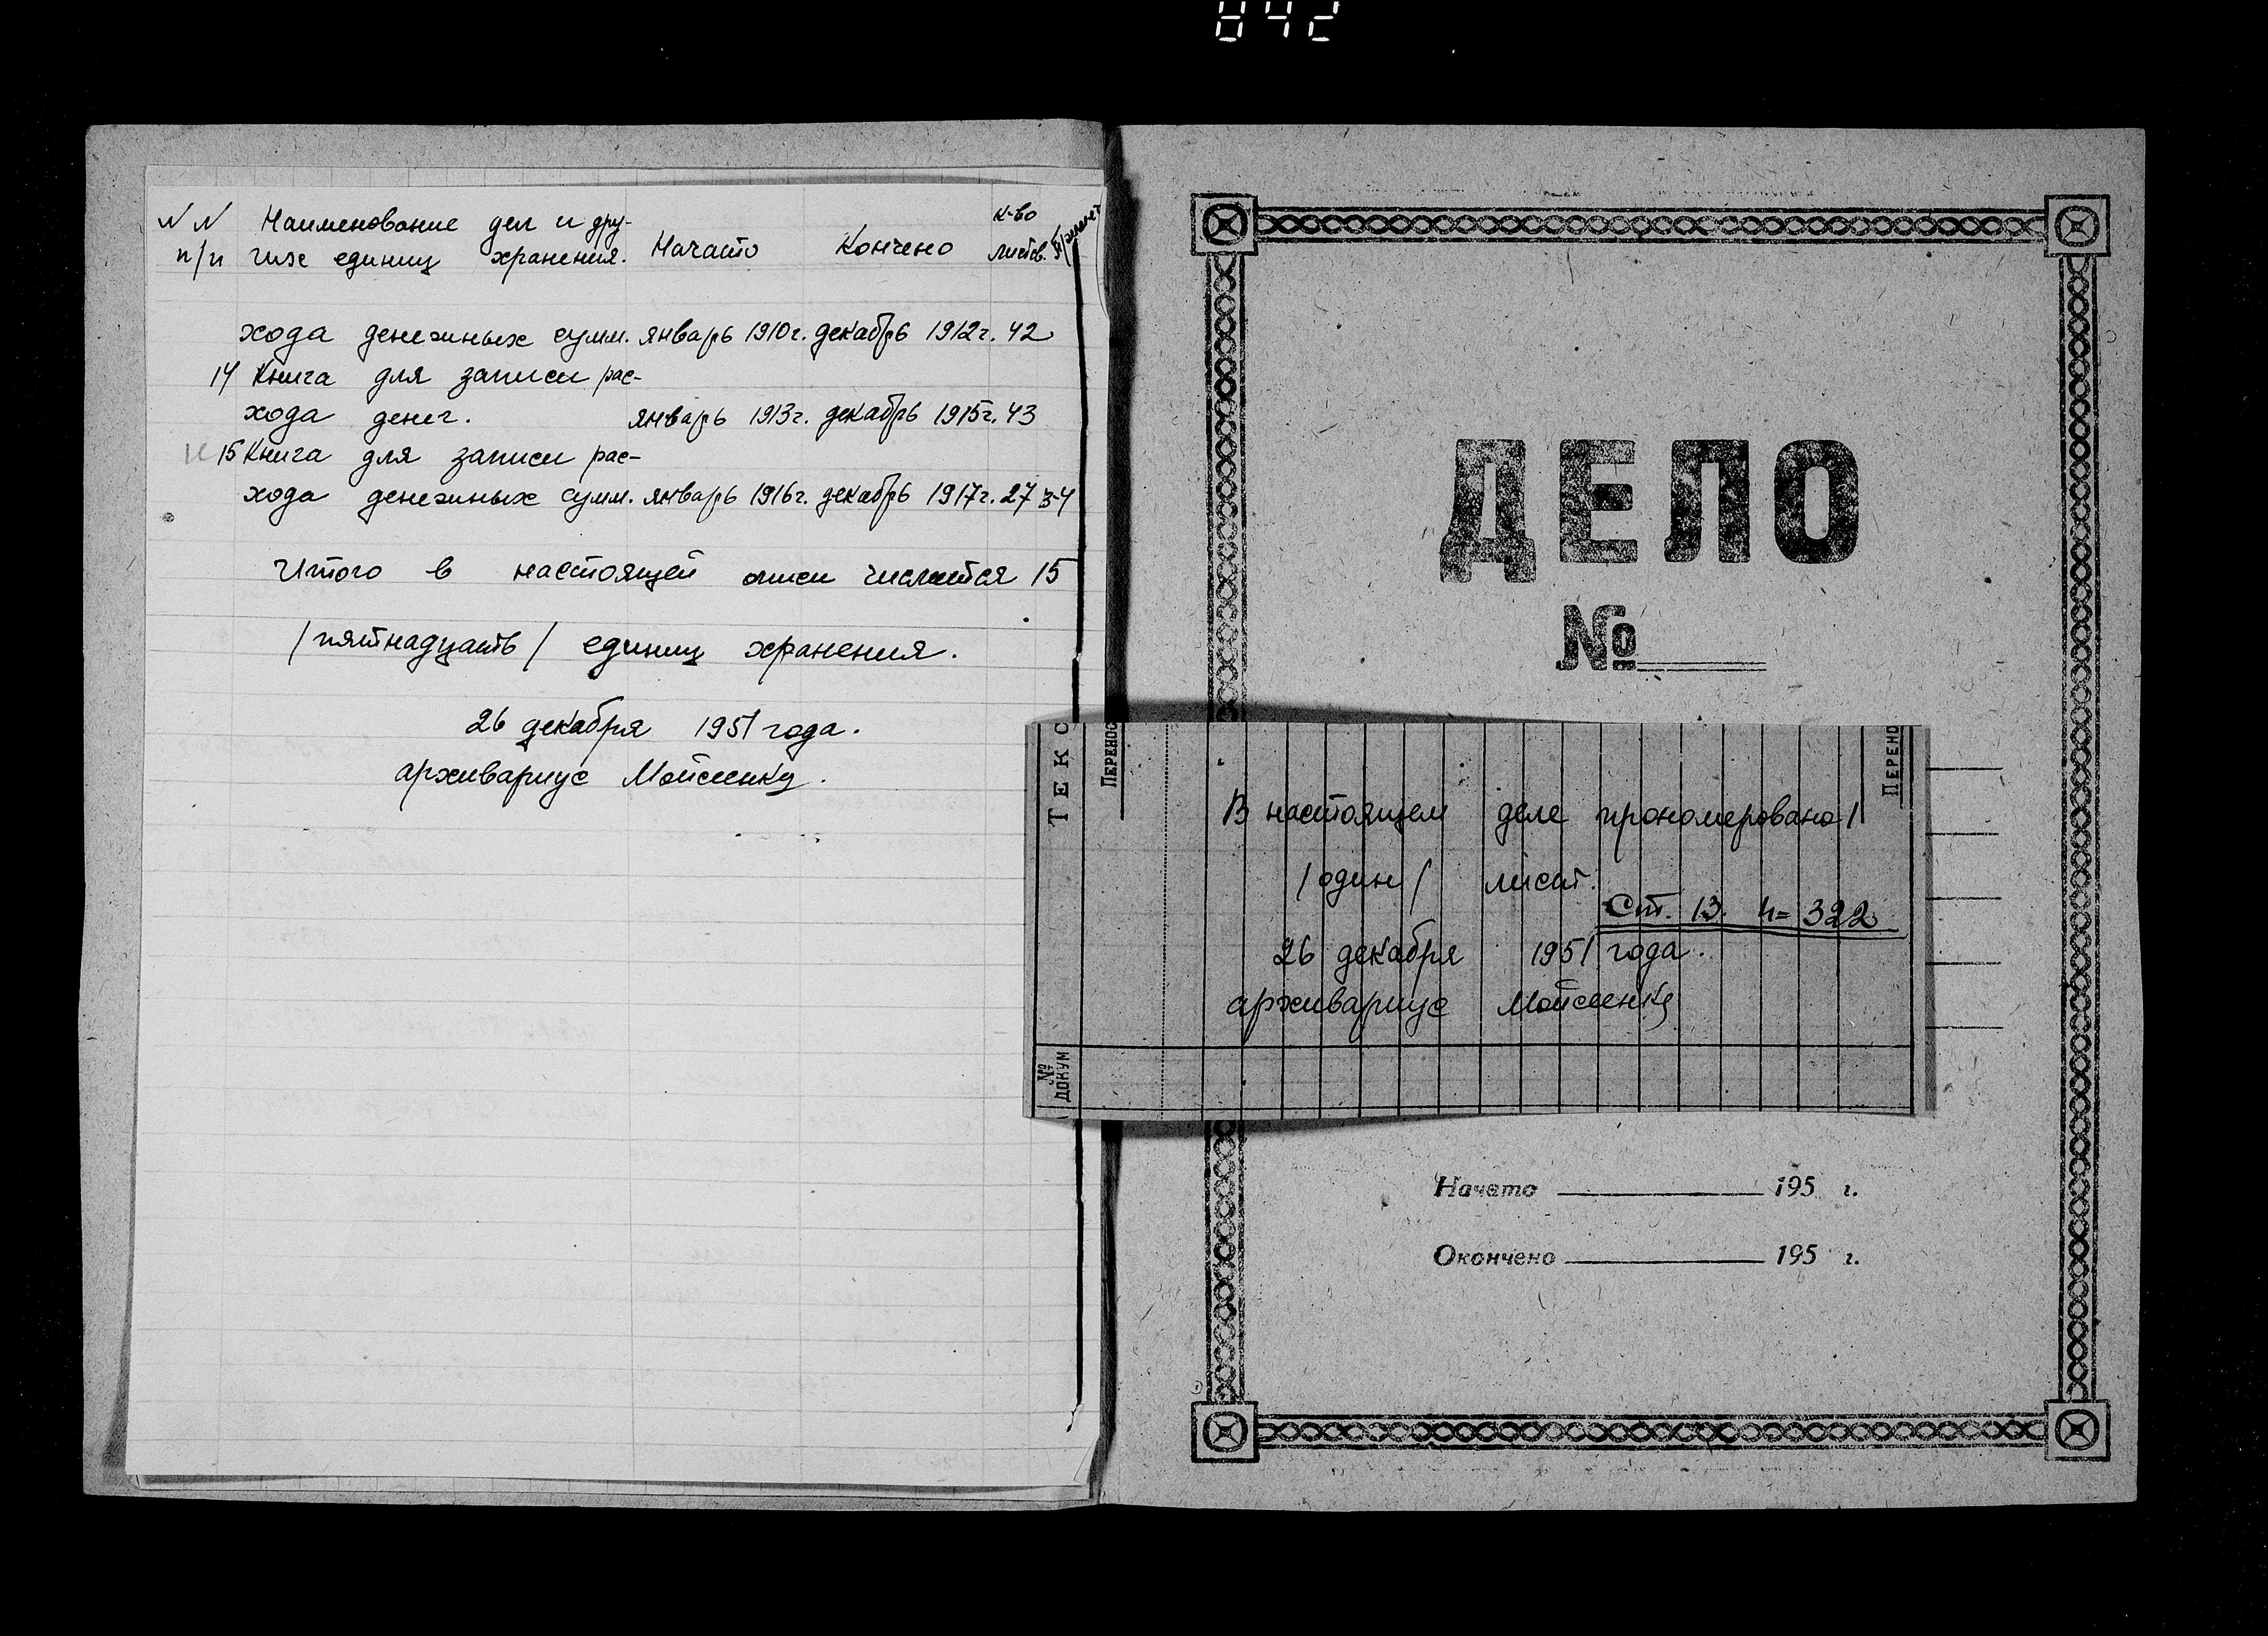 842
№ № Наименование дел и дру- к-во
п/п гих единиц хранения. Начато Кончено листов.
хода денежных сумм. январь 1910г. декабрь 1912г. 42
14 Книга для записи рас-
хода денег. январь 1913г. декабрь 1915г. 43
15 Книга для записи рас-
хода денежных сумм. январь 1916г. декабрь 1917г. 27
Итого в настоящей описи числится 15
/пятнадцать/ единиц хранения.
26 декабря 1951 года.
архивариус
ДЕЛО
№
ТЕКС
ПЕРЕНОС
ПЕРЕНО
В настоящем деле прономеровано 1
/один/ лист.
Ст. 13. 322
26 декабря 1951 года.
архивариус
№ ДОКУМ
Начато 195 г.
Окончено 195 г.